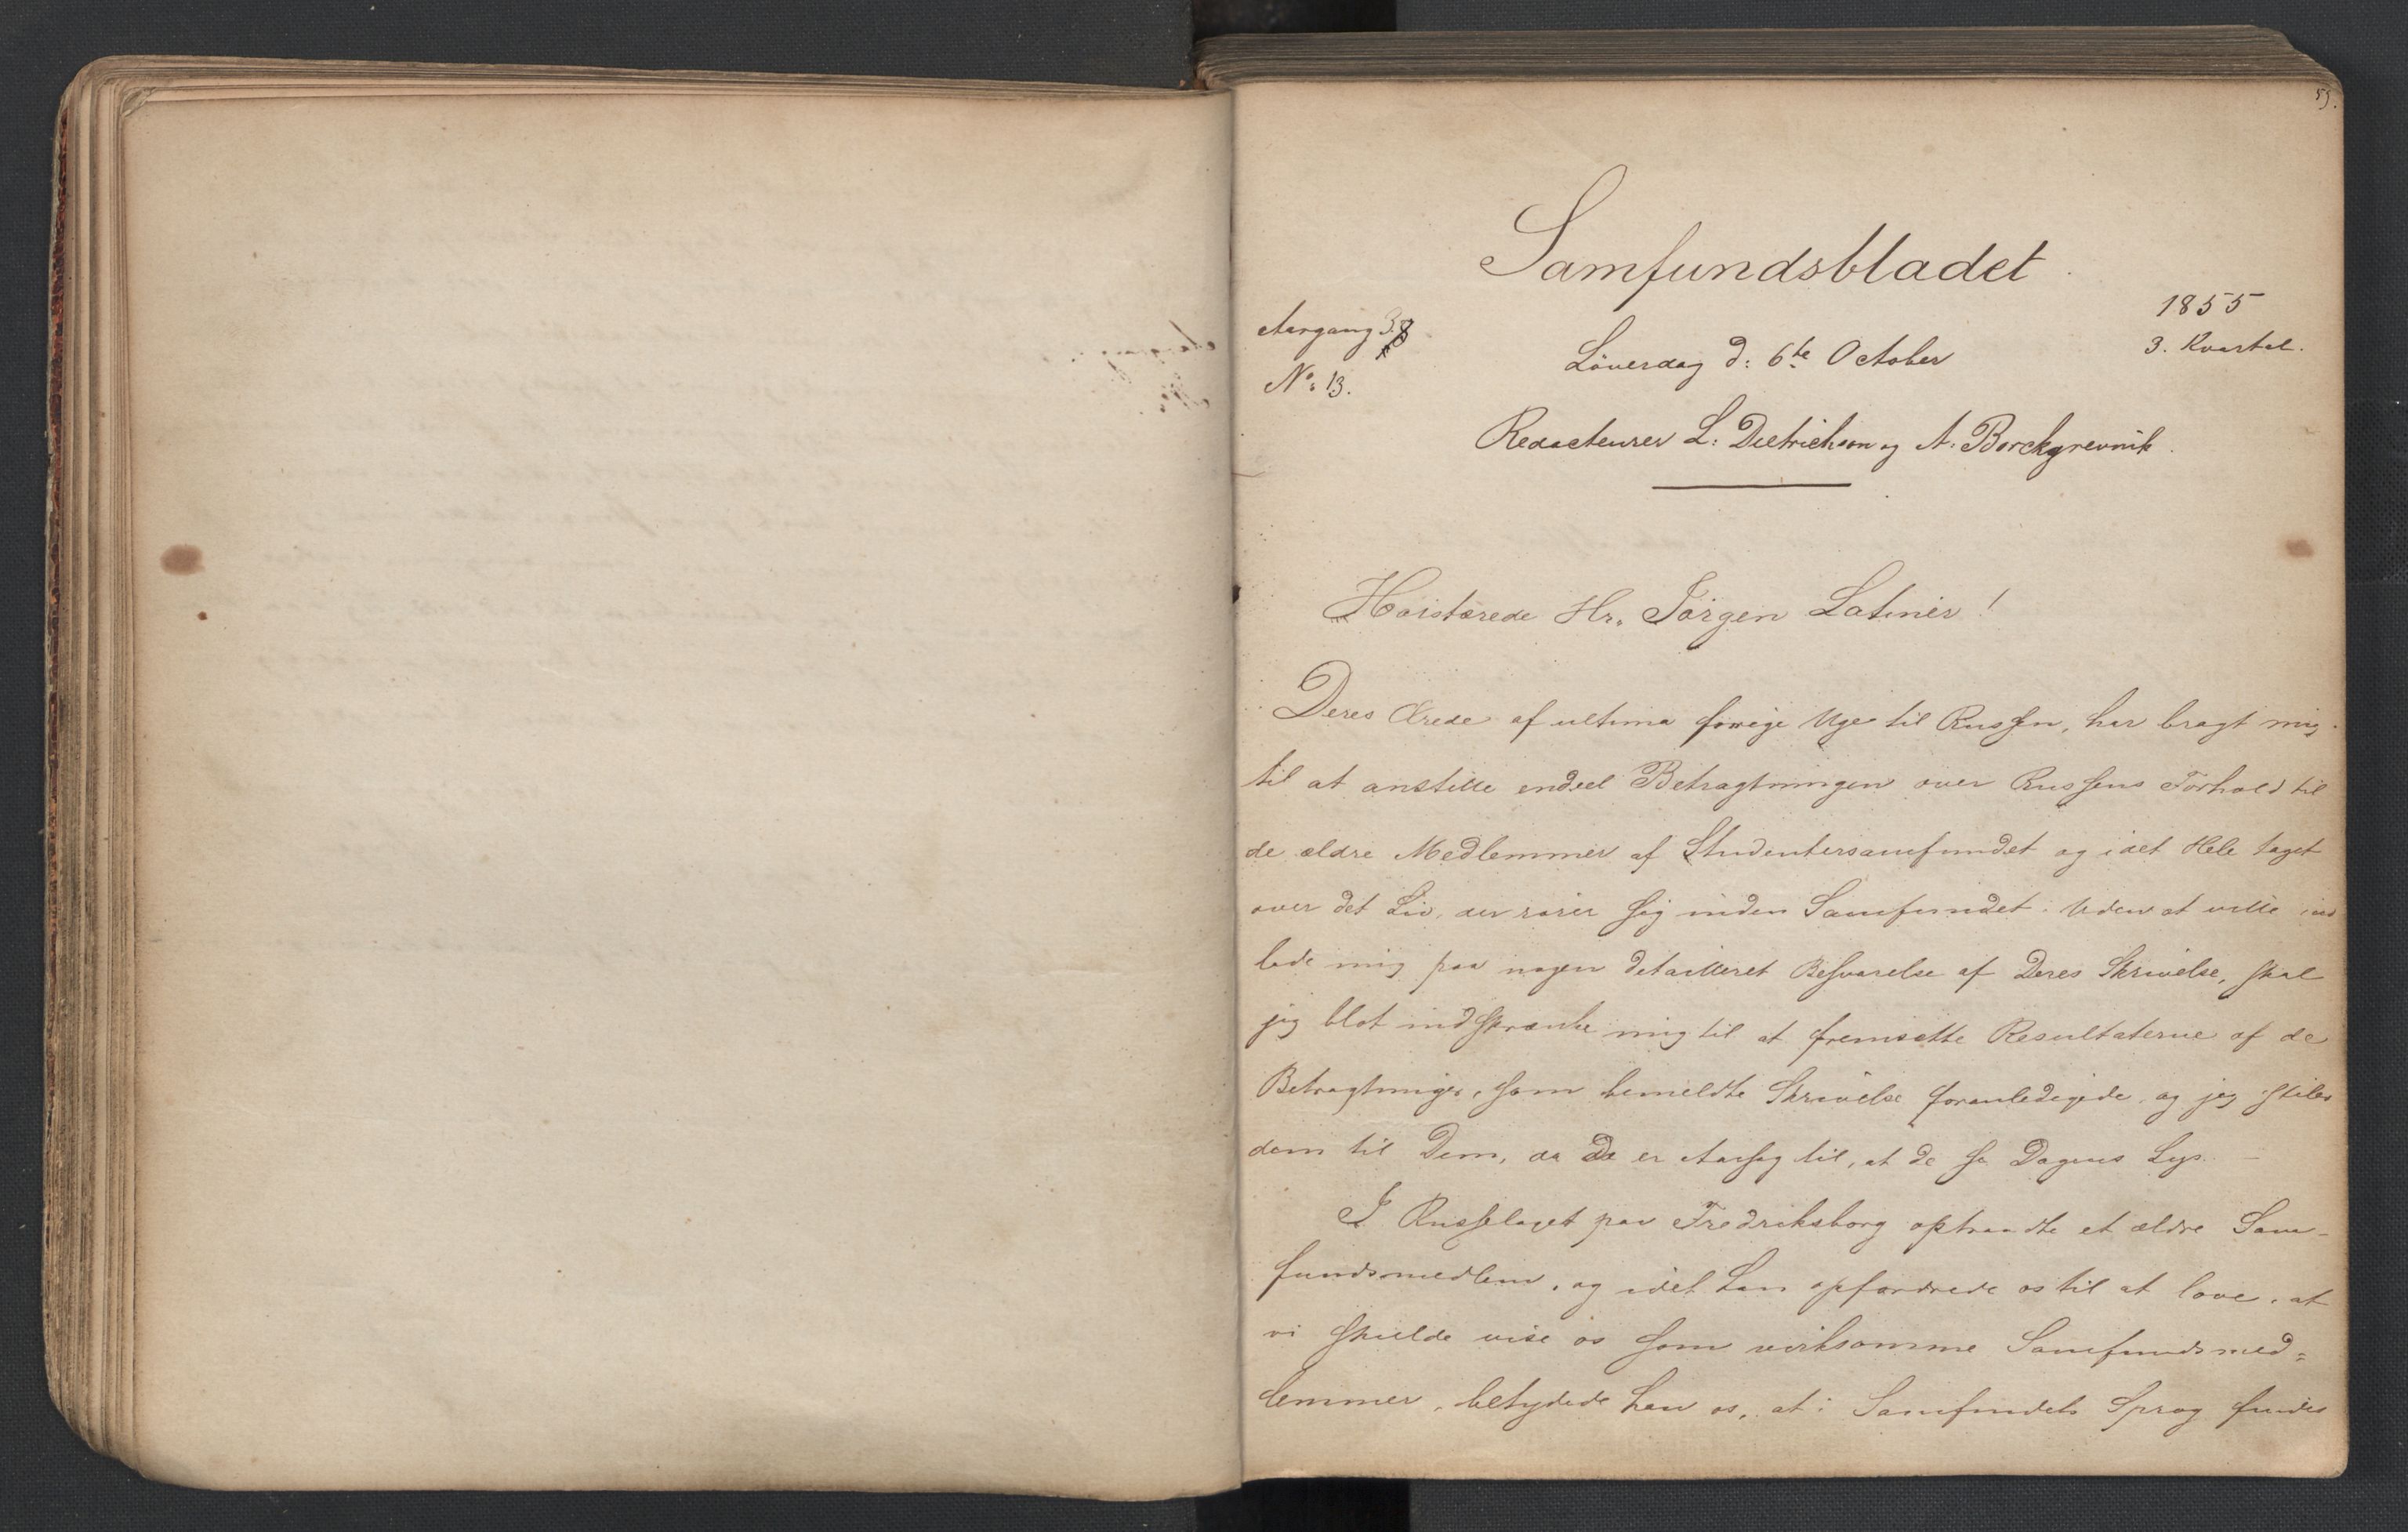 59.
Samfundsbladet
1855
Aargang 3.
3. Kvartal.
Löverdag d: 6te October
No: 13.
Redacteurer L: Dietrichson og A: Borchgrevink.
Høistærede Hr. Jörgen Latiner!
Deres Ærede af ultima forrige Uge til Russen, har bragt mig
til at anstille endeel Betragtninger over Russens Forhold til
de ældre Medlemmer af Studentersamfundet og i det Hele taget
over det Liv, der rører sig inden Samfundet. Uden at ville ind
lade mig paa nogen detailleret Besvarelse af Deres Skrivelse, skal
jeg blot indskrænke mig til at fremsætte Resultaterne af de
Betragtninger, som bemeldte Skrivelse foranledigede, og jeg stiler
dem til Dem, da De er Aarsag til, at de se Dagens Lys. –
I Russelaget paa Fredriksborg optraadte et ældre Sam-
fundsmedlem, og idet han opfordrede os til at love, at
vi skulde vise os som virksomme Samfundsmed=
lemmer, betydede han os, at i Samfundets Sprog findes